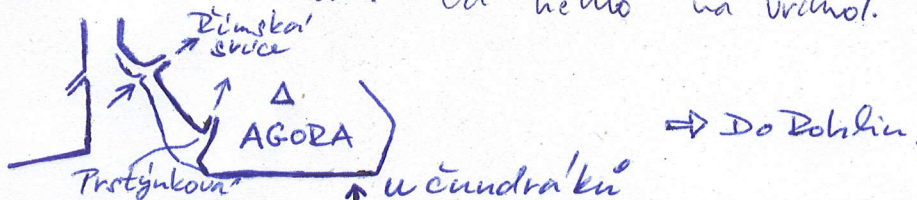 Od něho na vrchol.
Římská
svíce
AGORA
⇒ Do Rohlin.
Prstýnková
u čundráků